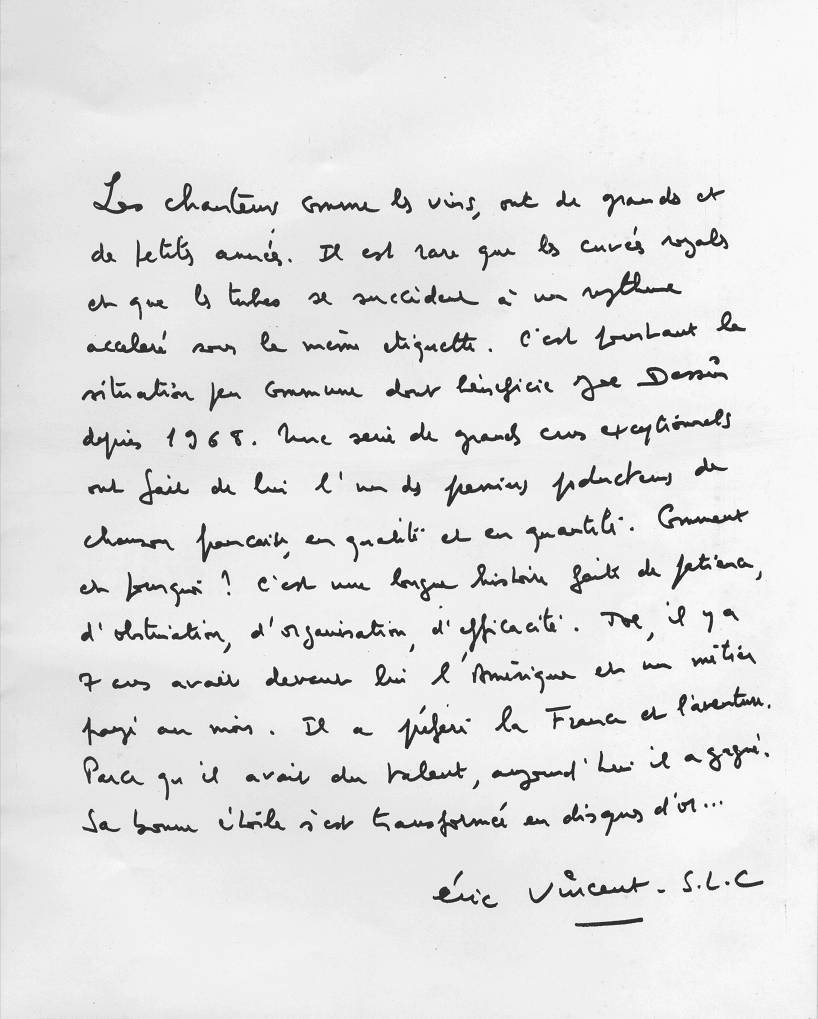 Les chanteurs comme les vins, ont de grands et
de petites années. Il est rare que les cuvées royales
et que les tubes se succèdent à un rythme
acceleré sous la même etiquette. C'est pourtant la
situation peu commune dont bénéficie Joe Dassin
depuis 1968. Une serie de grands crus exceptionnels
ont fait de lui l'un des premiers producteurs de
chanson française, en qualité et en quantité. Comment
et pourquoi ? C'est une longue histoire faite de patience,
d'obstination, d'organisation, d'efficacité. Joe, il y a
7 ans avait devant lui l'Amérique et un métier
payé au mois. Il a préféré la France et l'aventure.
Parce qu'il avait du talent, aujourd'hui il a gagné.
Sa bonne étoile s'est transformée en disques d'or...
éric Vincent - S.L.C